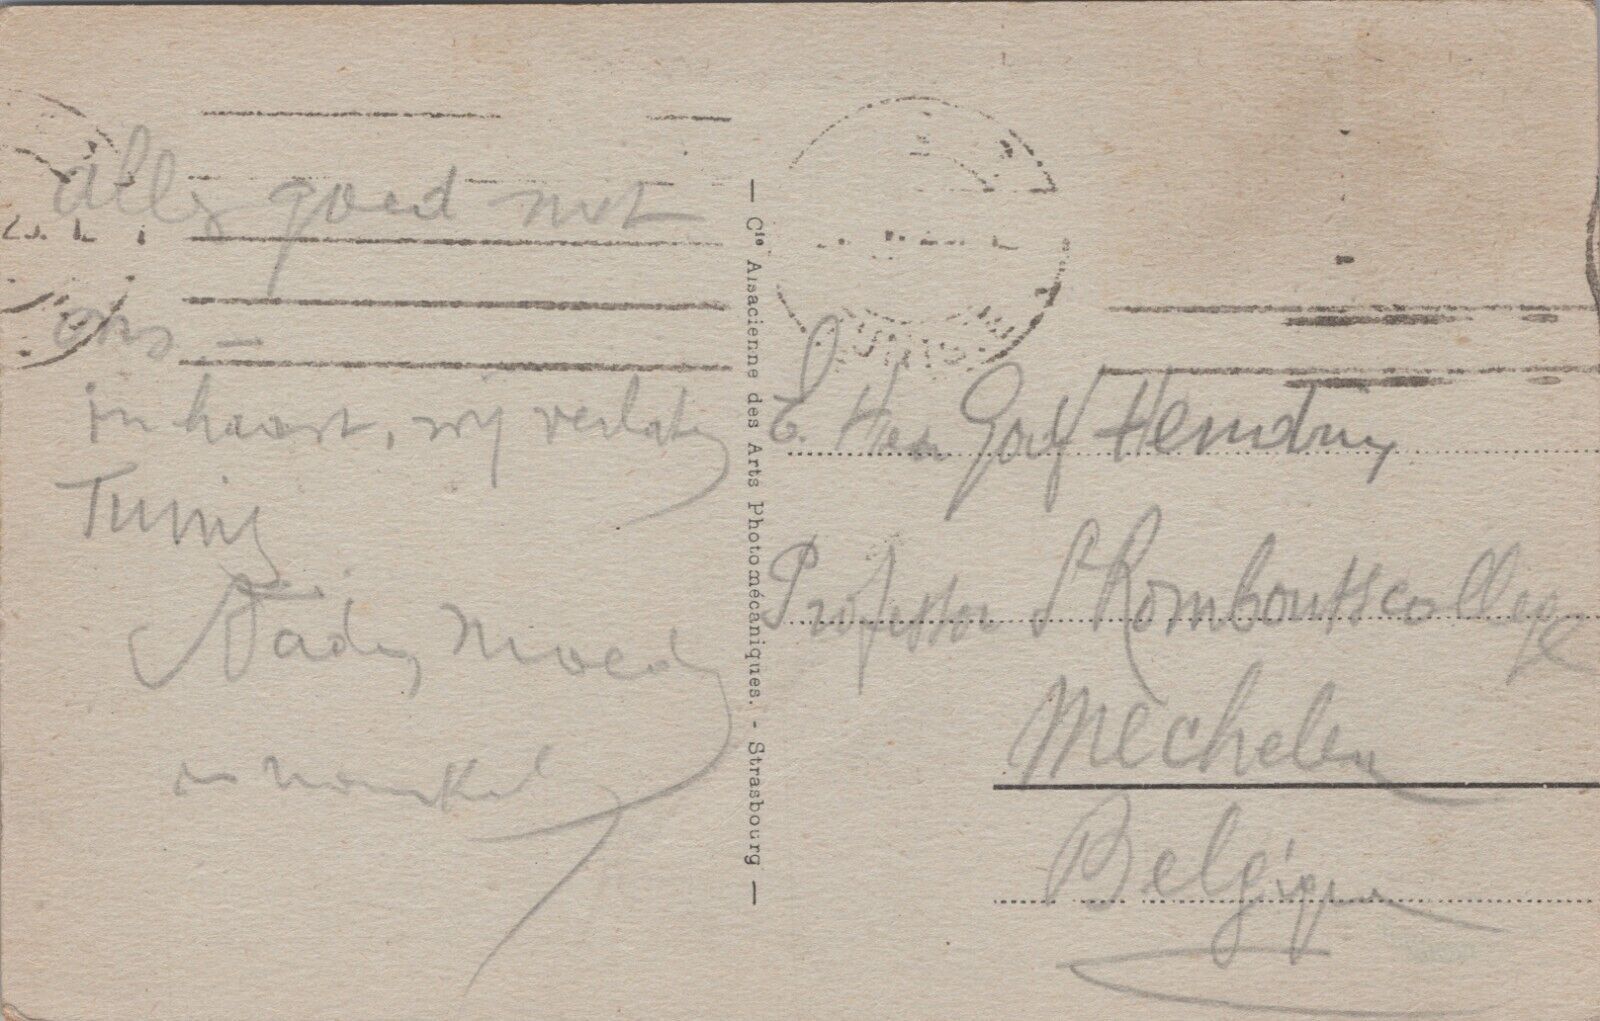 alles goed met
ons. —
in haast, wij verlaten
Tunis
Vader, moeder
E. Heer Jozef Hendrix
Professor St Romboutscollege
Mechelen
Belgique
— Cie Alsacienne des Arts Photomécaniques. - Strasbourg —